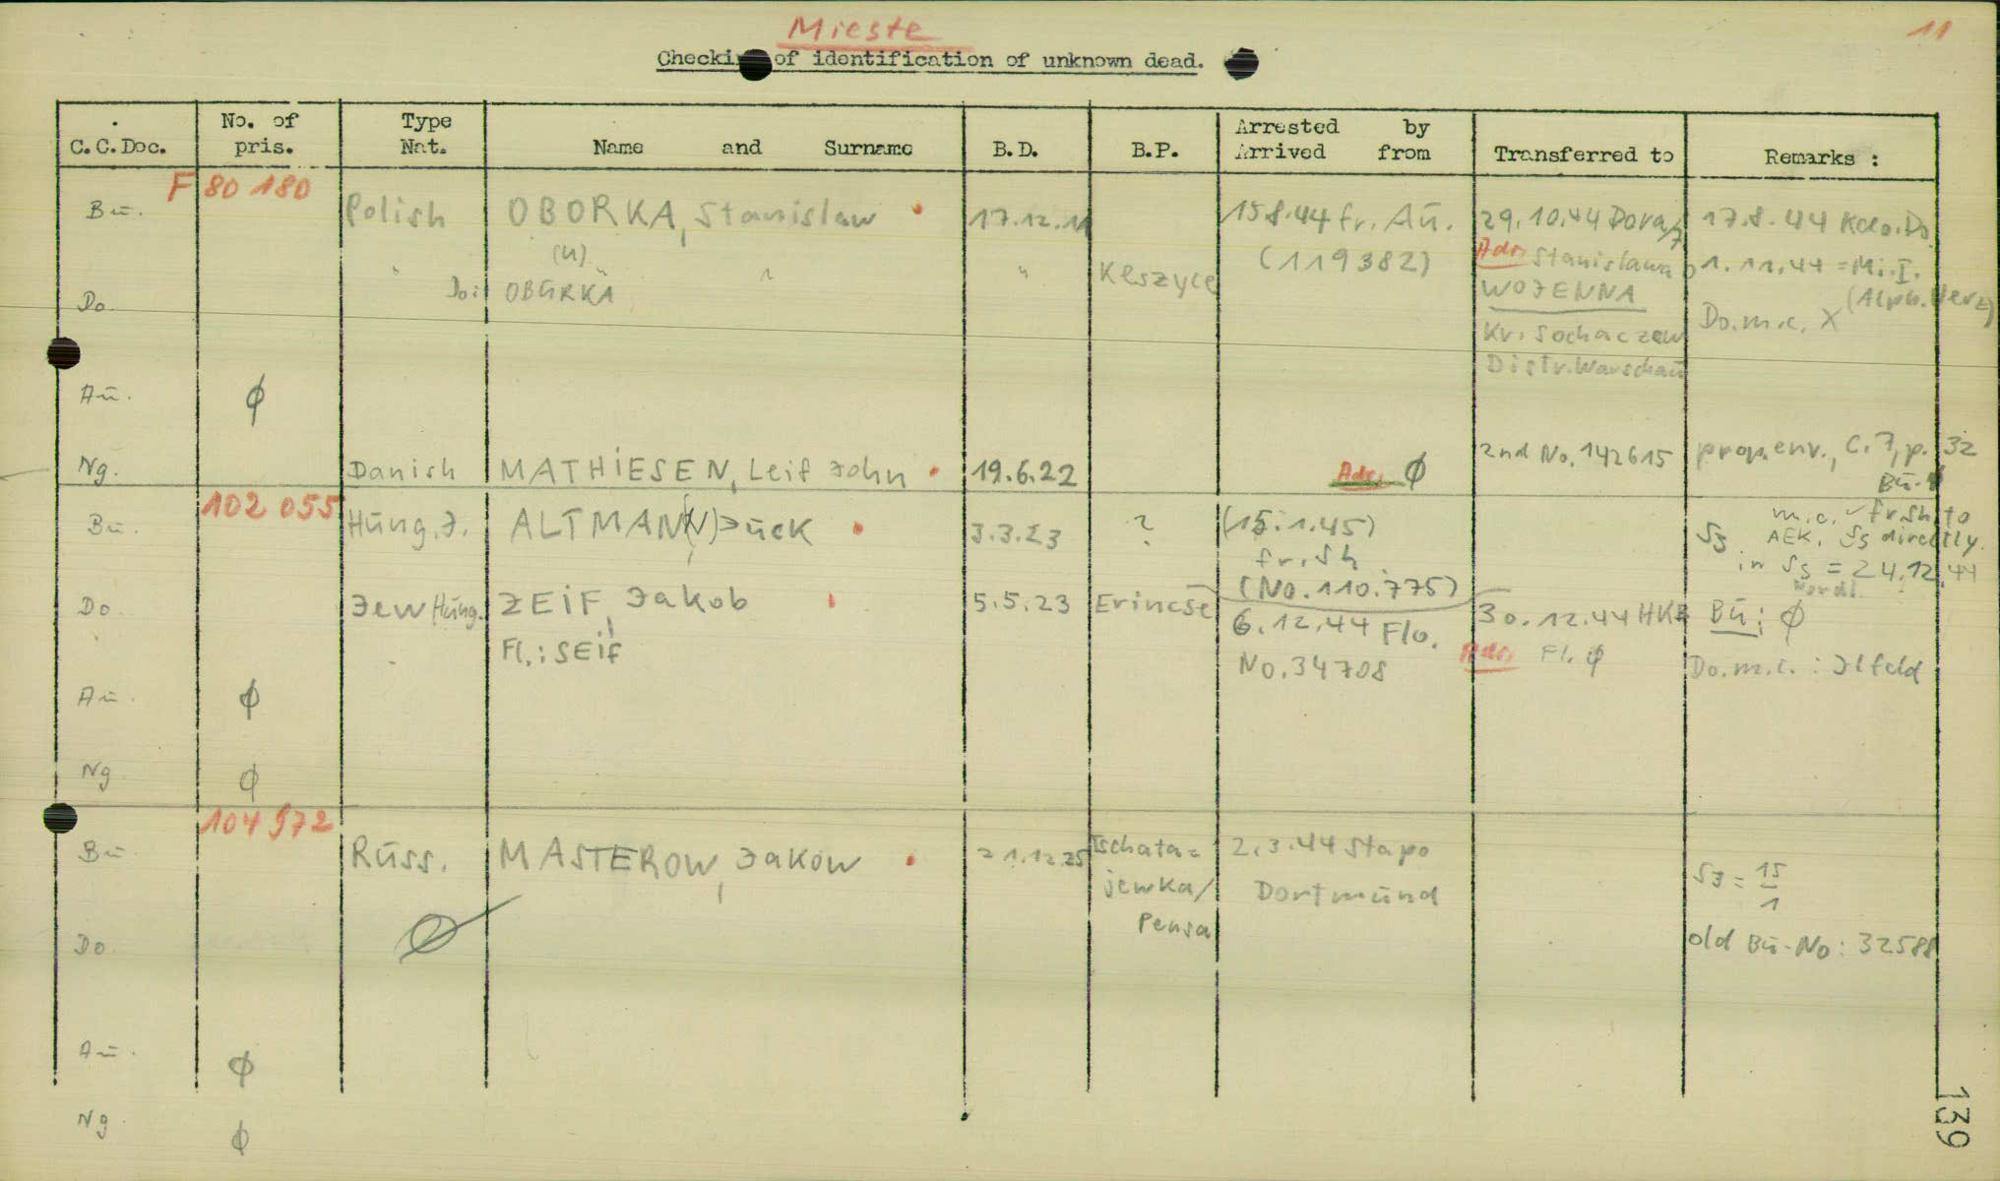 Mieste
11
Checking of identification of unknown dead.
C.C.Doc. No. of pris. Type Nat. Name and Surname B.D. B.P. Arrested by Arrived from Transferred to Remarks :
F 80 180
Bu. Polish OBORKA, Stanislaw 17.12.11 15.8.44 fr. Au. 29.10.44 Dora/ 17.8.44 Kdo. Do
(u) (119382) Adr. Stanislawa 1.11.44 = Mi. I.
Do. " Do: OBURKA " " Keszyce WOJENNA (Alph. Verz)
Kr. Sochaczew Do. m.c. X
Distr. Warschau
Au. ϕ
Ng. Danish MATHIESEN, Leif John 19.6.22 Adr. ϕ 2nd No. 142615 prop. env., C. 7, p. 32
Bu.
102 055
Bu. Hung. J. ALTMAN(N) Jück 3.3.23 ? (15.1.45) fr. Sh S3 m.c. fr Sh to
AEK. S3 directly.
in S3 = 24.12.44
(No. 110.775)
Do Jew Hung. ZEIF, Jakob 5.5.23 Erincse 6.12.44 Flo. 30.12.44 HKB Bu: ϕ
Fl.: SEIF No. 34708 Adr. Fl. ϕ Do. m.c. : Ilfeld
Au. ϕ
Ng ϕ
104 972
Bu Russ. MASTEROW, Jakow 21.12.25 Tschata= 2.3.44 Stapo
jewka/ Dortmund S3 = 15
1
Pensa
Do ϕ old Bu-No: 32588
Au. ϕ
Ng ϕ
139